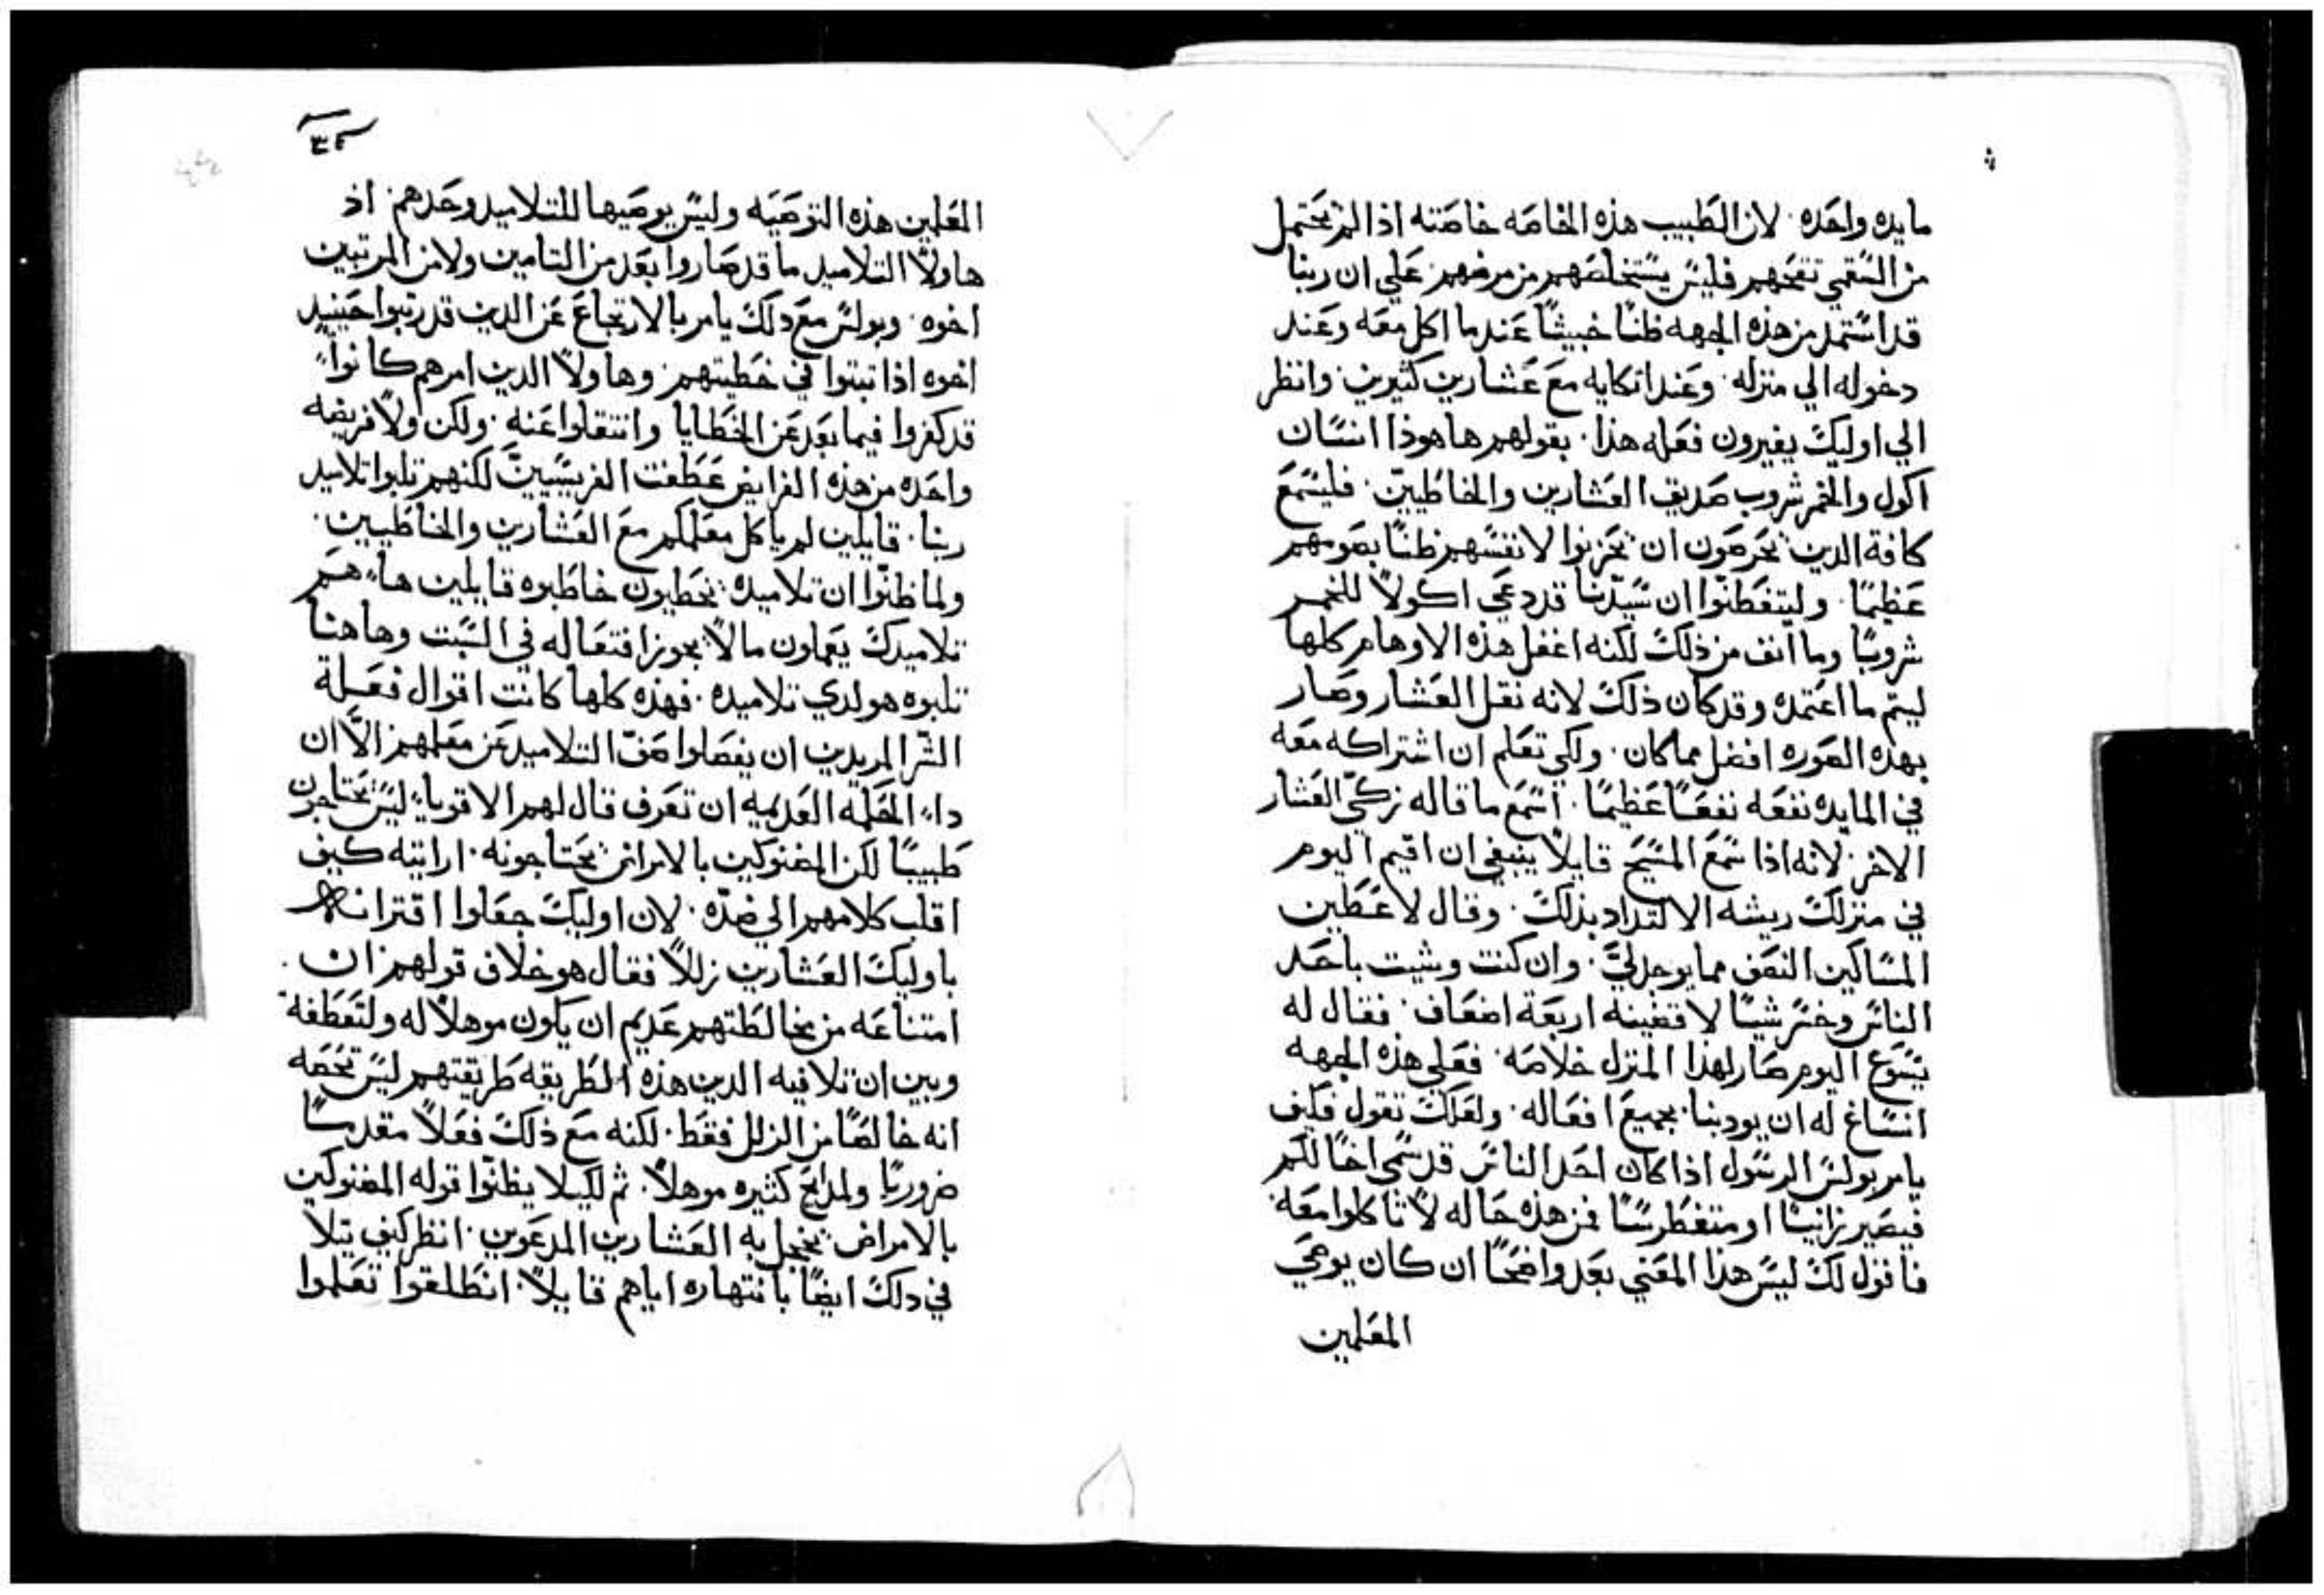 مايده واحده. لان الطبيب هذه الخاصه خاصته اذا لم يحتمل
من السقمي تقيحهم فليس يستخلصهم من مرضهم. علي ان ربنا
قد استمد من هذه الجهه ظنًا خبيثًا عندما اكل معه وعند
دخوله الي منزله. وعند اتكايه مع عشارين كثيرين. وانظر
الي اوليك يغيرون فعله هذا. بقولهم ها هوذا انسان
اكول والخمر شروب صديق العشارين والخاطيين. فليسمع
كافة الدين يحرصون ان يحزنوا لانفسهم ظنًا بصومهم
عظيمًا. وليتفطنوا ان سيدنا قد دعي اكولاً للخمر
شروبًا وما انف من ذلك لكنه اغفل هذه الاوهام كلها
ليتم ما اعتمده وقد كان ذلك لانه نقل العشار وصار
بهده الصوره افضل مما كان. ولكي تعلم ان اشتراكه معه
في المايده نفعه نفعًا عظيمًا. اسمع ما قاله زكي العشار
الاخر. لانه اذا سمع المسيح قايلاً ينبغي ان اقيم اليوم
في منزلك ريشه الالتداد بذلك. وقال لاعطين
المساكين النصف مما يوجد لي. وان كنت وشيت باحد
الناس وخنس شيًا لاقضينه اربعة اضعاف. فقال له
يسوع اليوم صار لهذا المنزل خلاصه. فعلي هذه الجهه
انساغ له ان يودبنا بجميع افعاله. ولعلك تقول فكيف
يامر بولس الرسول اذا كان احد الناس قد سمي اخًا لكم
فيصير زانيًا او متغطرسًا فمن هذه حاله لا تاكلوا معه.
فاقول لك ليس هذا المعني بعد واضحًا ان كان يوصي
المعلمين
٣٤
المعلمين هذه التوصيه وليس يوصيها للتلاميد وحدهم. اذ
هاولا التلاميد ما قد صاروا بعد من التامين ولا من المرتبين
اخوه. وبولس مع دلك يامر بالارتجاع عن الدين قد رتبوا حينيد
اخوه اذا تبتوا في خطيتهم. وهاولا الدين امرهم كانوا
قد كفروا فيما بعد عن الخطايا وانتقلوا عنه. ولكن ولا فريضه
واحده من هذه الفرايض عطفت الفريسيين لكنهم تلبوا تلاميد
ربنا. قايلين لم ياكل معلمكم مع العشارين والخاطيين.
ولما ظنوا ان تلاميده يخطيون خاطبوه قايلين هاء هم
تلاميدك يعملون ما لا يجوز افتعاله في السبت وهاهنا
تلبوه هو لدي تلاميده. فهذه كلها كانت اقوال فعلة
الشر المريدين ان يفصلوا صف التلاميد عن معلمهم الا ان
داء الحلمه العديمه ان تعرف قال لهم الاقوياء ليس يحتاجون
طبيبًا لكن المضنوكين بالامراض يحتاجونه. اراتيه كيف
اقلب كلامهم الي ضده. لان اوليك جعلوا اقترانه
باوليك العشارين زللاً فقال هو خلاف قولهم ان
امتناعه من مخالطتهم عديم ان يكون موهلاً له ولتعطفه
وبين ان تلافيه الدين هذه الطريقه طريقتهم ليس تخصه
انه خالصًا من الزلل فقط. لكنه مع ذلك فعلاً مقدسًا
ضروريًا ولمدايح كثيره موهلاً. ثم لكيلا يظنوا قوله المضنوكين
بالامراض يخجل به العشارين المدعوين. انظر كيف يتلا
في دلك ايضًا بانتهاره اياهم قايلاً. انطلقوا تعلموا